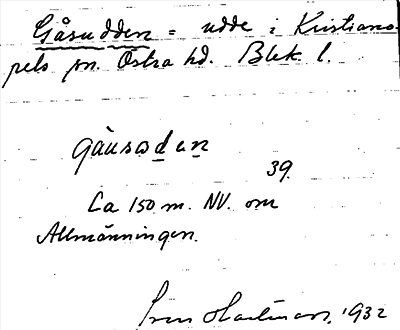 Gåsudden = udde i Kristiano-
pels sn. Östra hd. Blek. l.
gåusɷdɛn
39.
Ca 150 m. NV. om
Allmänningen.
Sven Hartman, 1932